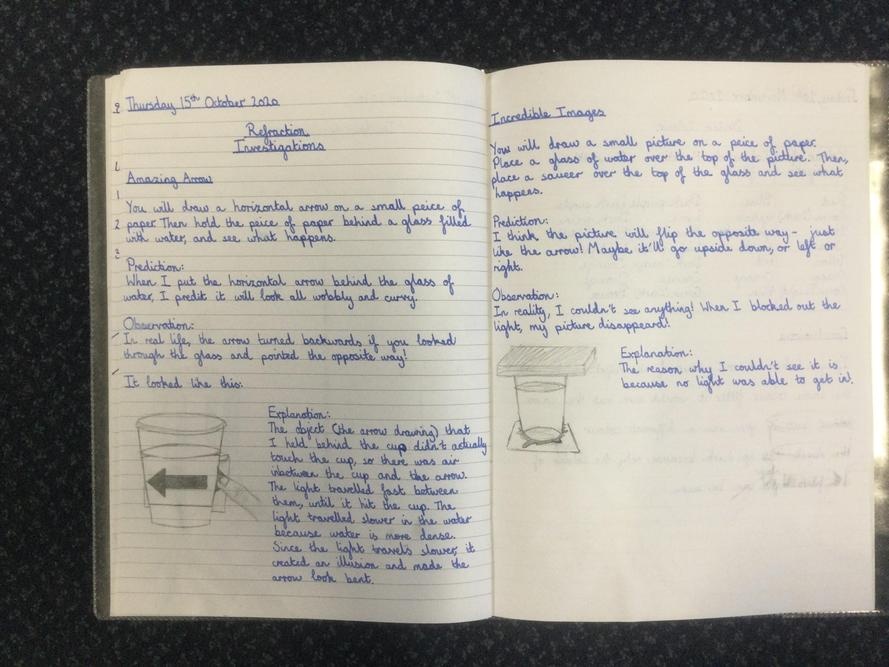 Thursday 15th October 2020
Refraction
Investigations
Amazing Arrow
You will draw a horizontal arrow on a small peice of
paper. Then hold the peice of paper behind a glass filled
with water, and see what happens.
Prediction:
When I put the horizontal arrow behind the glass of
water, I predit it will look all wobbly and curvy.
Observation:
In real life, the arrow turned backwards if you looked
through the glass and pointed the opposite way!
It looked like this:
Explanation:
The object (the arrow drawing) that
I held behind the cup didn't actually
touch the cup, so there was air
inbetween the cup and the arrow.
The light travelled fast between
them, until it hit the cup. The
light travelled slower in the water
because water is more dense.
Since the light travels slower, it
created an illusion and made the
arrow look bent.
Incredible Images
You will draw a small picture on a peice of paper.
Place a glass of water over the top of the picture. Then,
place a saucer over the top of the glass and see what
happens.
Prediction:
I think the picture will flip the opposite way - just
like the arrow! Maybe it'll go upside down, or left or
right.
Observation:
In reality, I couldn't see anything! When I blocked out the
light, my picture disappeard!
Explanation:
The reason why I couldn't see it is
because no light was able to get in!